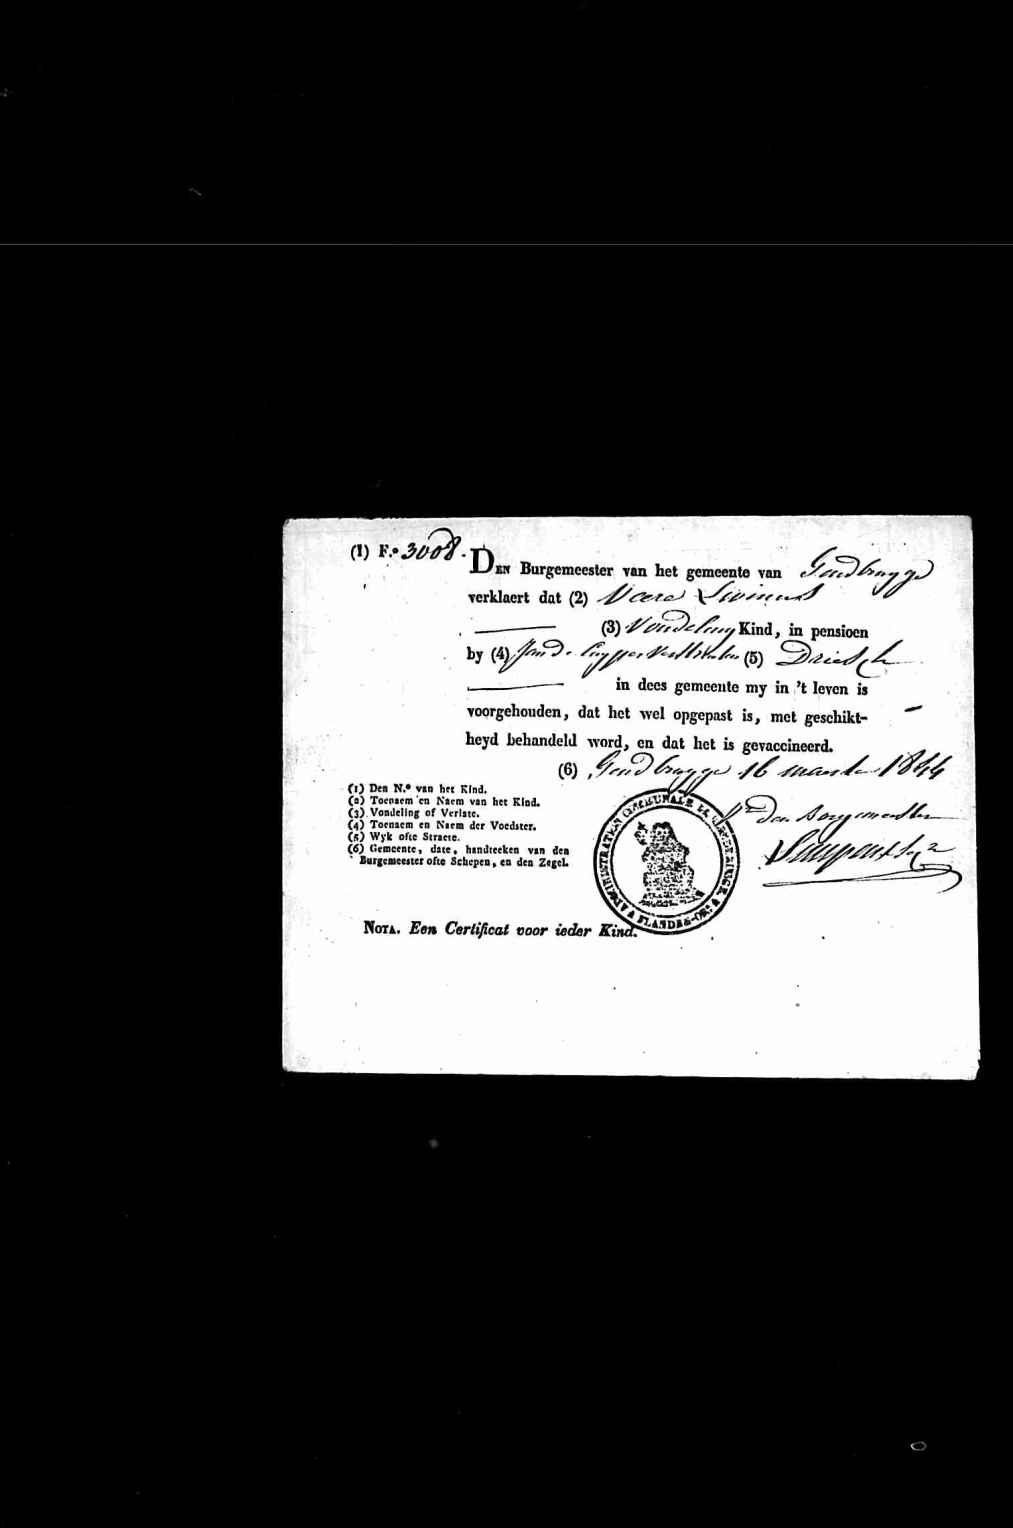 (1) F.º 3008.
DEN Burgemeester van het gemeente van Gendbrugge
verklaert dat (2) Livinus
(3) Vondeling Kind, in pensioen
by (4) Jan De Cuyper (5) Driesch
in dees gemeente my in 't leven is
voorgehouden, dat het wel opgepast is, met geschikt-
heyd behandeld word, en dat het is gevaccineerd.
(6) Gendbrugge 16 maerte 1844
(1) Den N.º van het Kind.
(2) Toenaem en Naem van het Kind.
(3) Vondeling of Verlate.
(4) Toenaem en Naem der Voedster.
(5) Wyk ofte Straete.
(6) Gemeente, date, handteeken van den
Burgemeester ofte Schepen, en den Zegel.
Den Borgemeester
COMMUNALE FLANDRE-OR:
NOTA. Een Certificat voor ieder Kind.